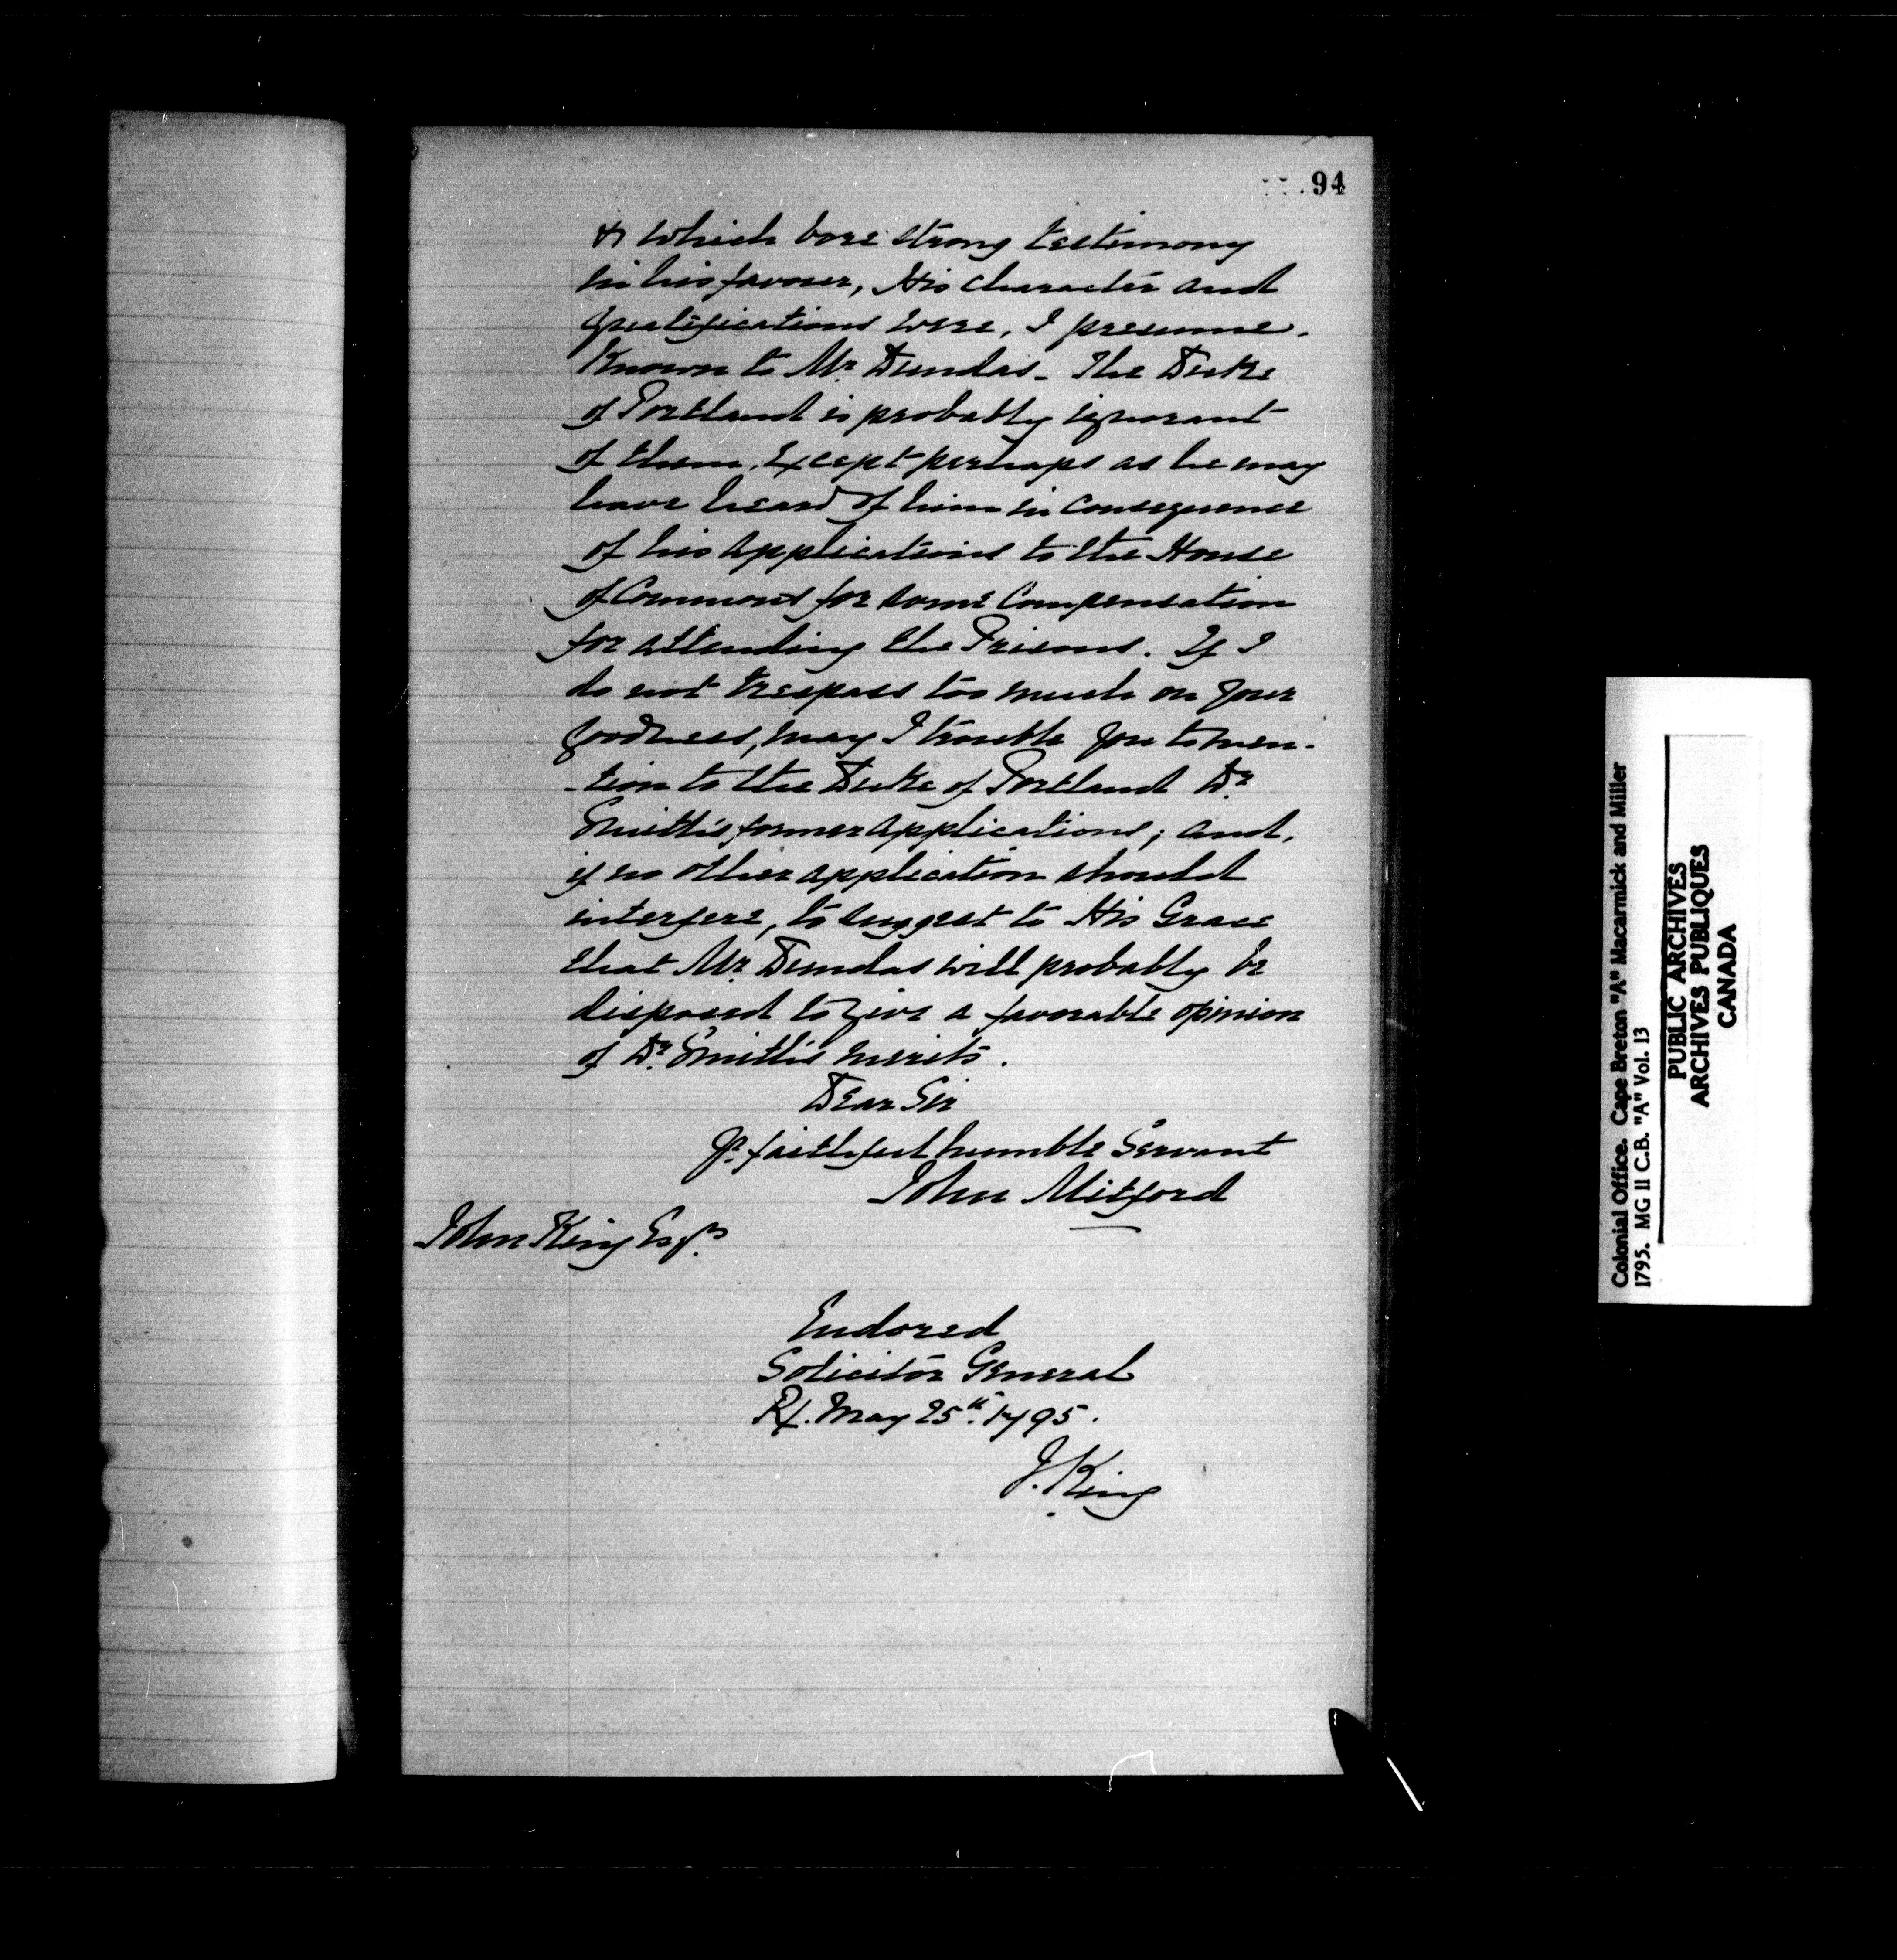 94
& which bore strong testimony
in his favour, His character and
qualifications were, I presume,
Known to Mr. Dundas. The Duke
of Portland is probably ignorant
of them, Except perhaps as he may
have heard of him in consequence
of his applications to the House
of Commons for some Compensation
for attending the Prisons. If I
do not trespass too much on your
goodness, may I trouble you to men-
-tion to the Duke of Portland Dr.
Smith's former applications; and,
if no other application should
interfere, to suggest to His Grace
that Mr. Dundas will probably be
disposed to give a favorable opinion
of Dr. Smith's merits.
Dear Sir
Yr. faithful humble Servant
John Mitford
John King Esqr.
Endorsed
Solicitor General
Rx. May 25th. 1795.
J. King
Colonial Office. Cape Breton "A" Macarmick and Miller
1795. MG 11 C.B. "A" Vol. 13
PUBLIC ARCHIVES
ARCHIVES PUBLIQUES
CANADA